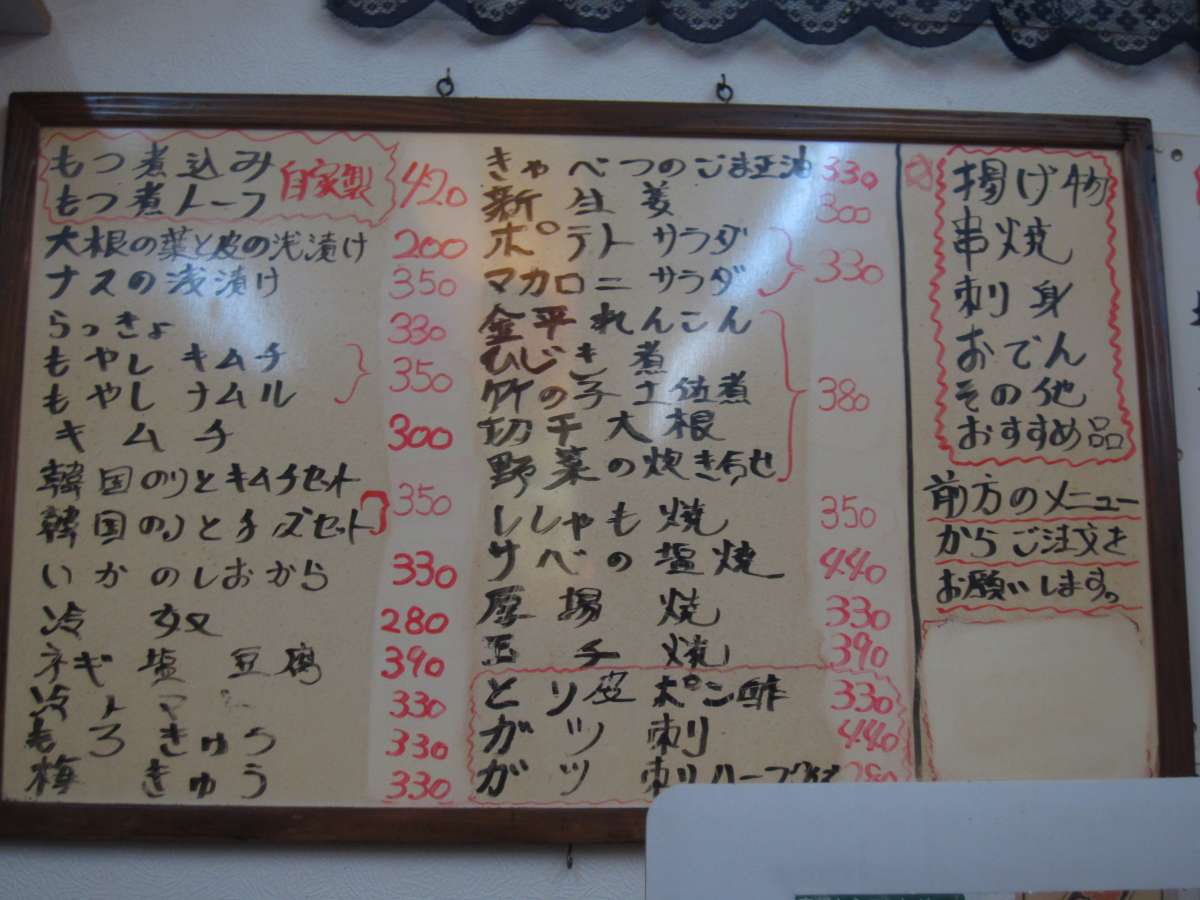 もつ煮込み
もつ煮トーフ
自家製 420
大根の葉と皮の浅漬け 200
ナスの浅漬け 350
らっきょ 330
もやし キムチ
もやし ナムル
350
キムチ 300
韓国のりとキムチセット
韓国のりとチーズセット
350
いかのしおから 330
冷奴 280
ネギ塩豆腐 390
冷トマ 330
もろきゅう 330
梅きゅう 330
きゃべつのごま正油 330
新生姜 300
ポテトサラダ
マカロニサラダ
330
金平れんこん
ひじき煮
竹の子土佐煮
切干大根
野菜の炊き合せ
380
ししゃも焼 350
サバの塩焼 440
厚揚焼 330
玉子焼 390
とり皮ポン酢 330
ガツ刺 440
ガツ刺ハーフ 280
揚げ物
串焼
刺身
おでん
その他
おすすめ品
前方のメニュー
からご注文を
お願いします。